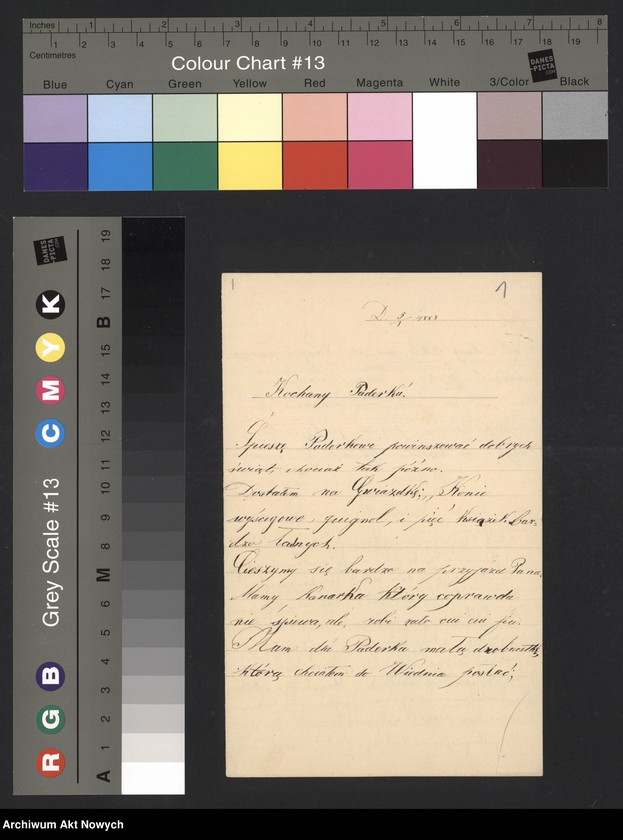 Inches 1 2 3 4 5 6 7 8
Centimetres 1 2 3 4 5 6 7 8 9 10 11 12 13 14 15 16 17 18 19
Colour Chart #13
DANES-PICTA.COM
Blue Cyan Green Yellow Red Magenta White 3/Color Black
Grey Scale #13
DANES-PICTA.COM
R G B C M Y K
A 1 2 3 4 5 6 M 8 9 10 11 12 13 14 15 B 17 18 19
1
D. 5/1
Kochany Paderku!
Śpieszę Paderkowi powinszować dobrych
świąt, chociaż tak późno.
Dostałem na Gwiazdkę: „Konie
wyścigowe, guignol, i pięć książek bar-
dzo ładnych.
Cieszymy się bardzo na przyjazd Pana.
Mamy kanarka który coprawda
nie śpiewa, ale, robi zato ciu ciu piu.
Mam dla Paderka małą drobnostkę
którą chciałem do Wiednia posłać,
Archiwum Akt Nowych